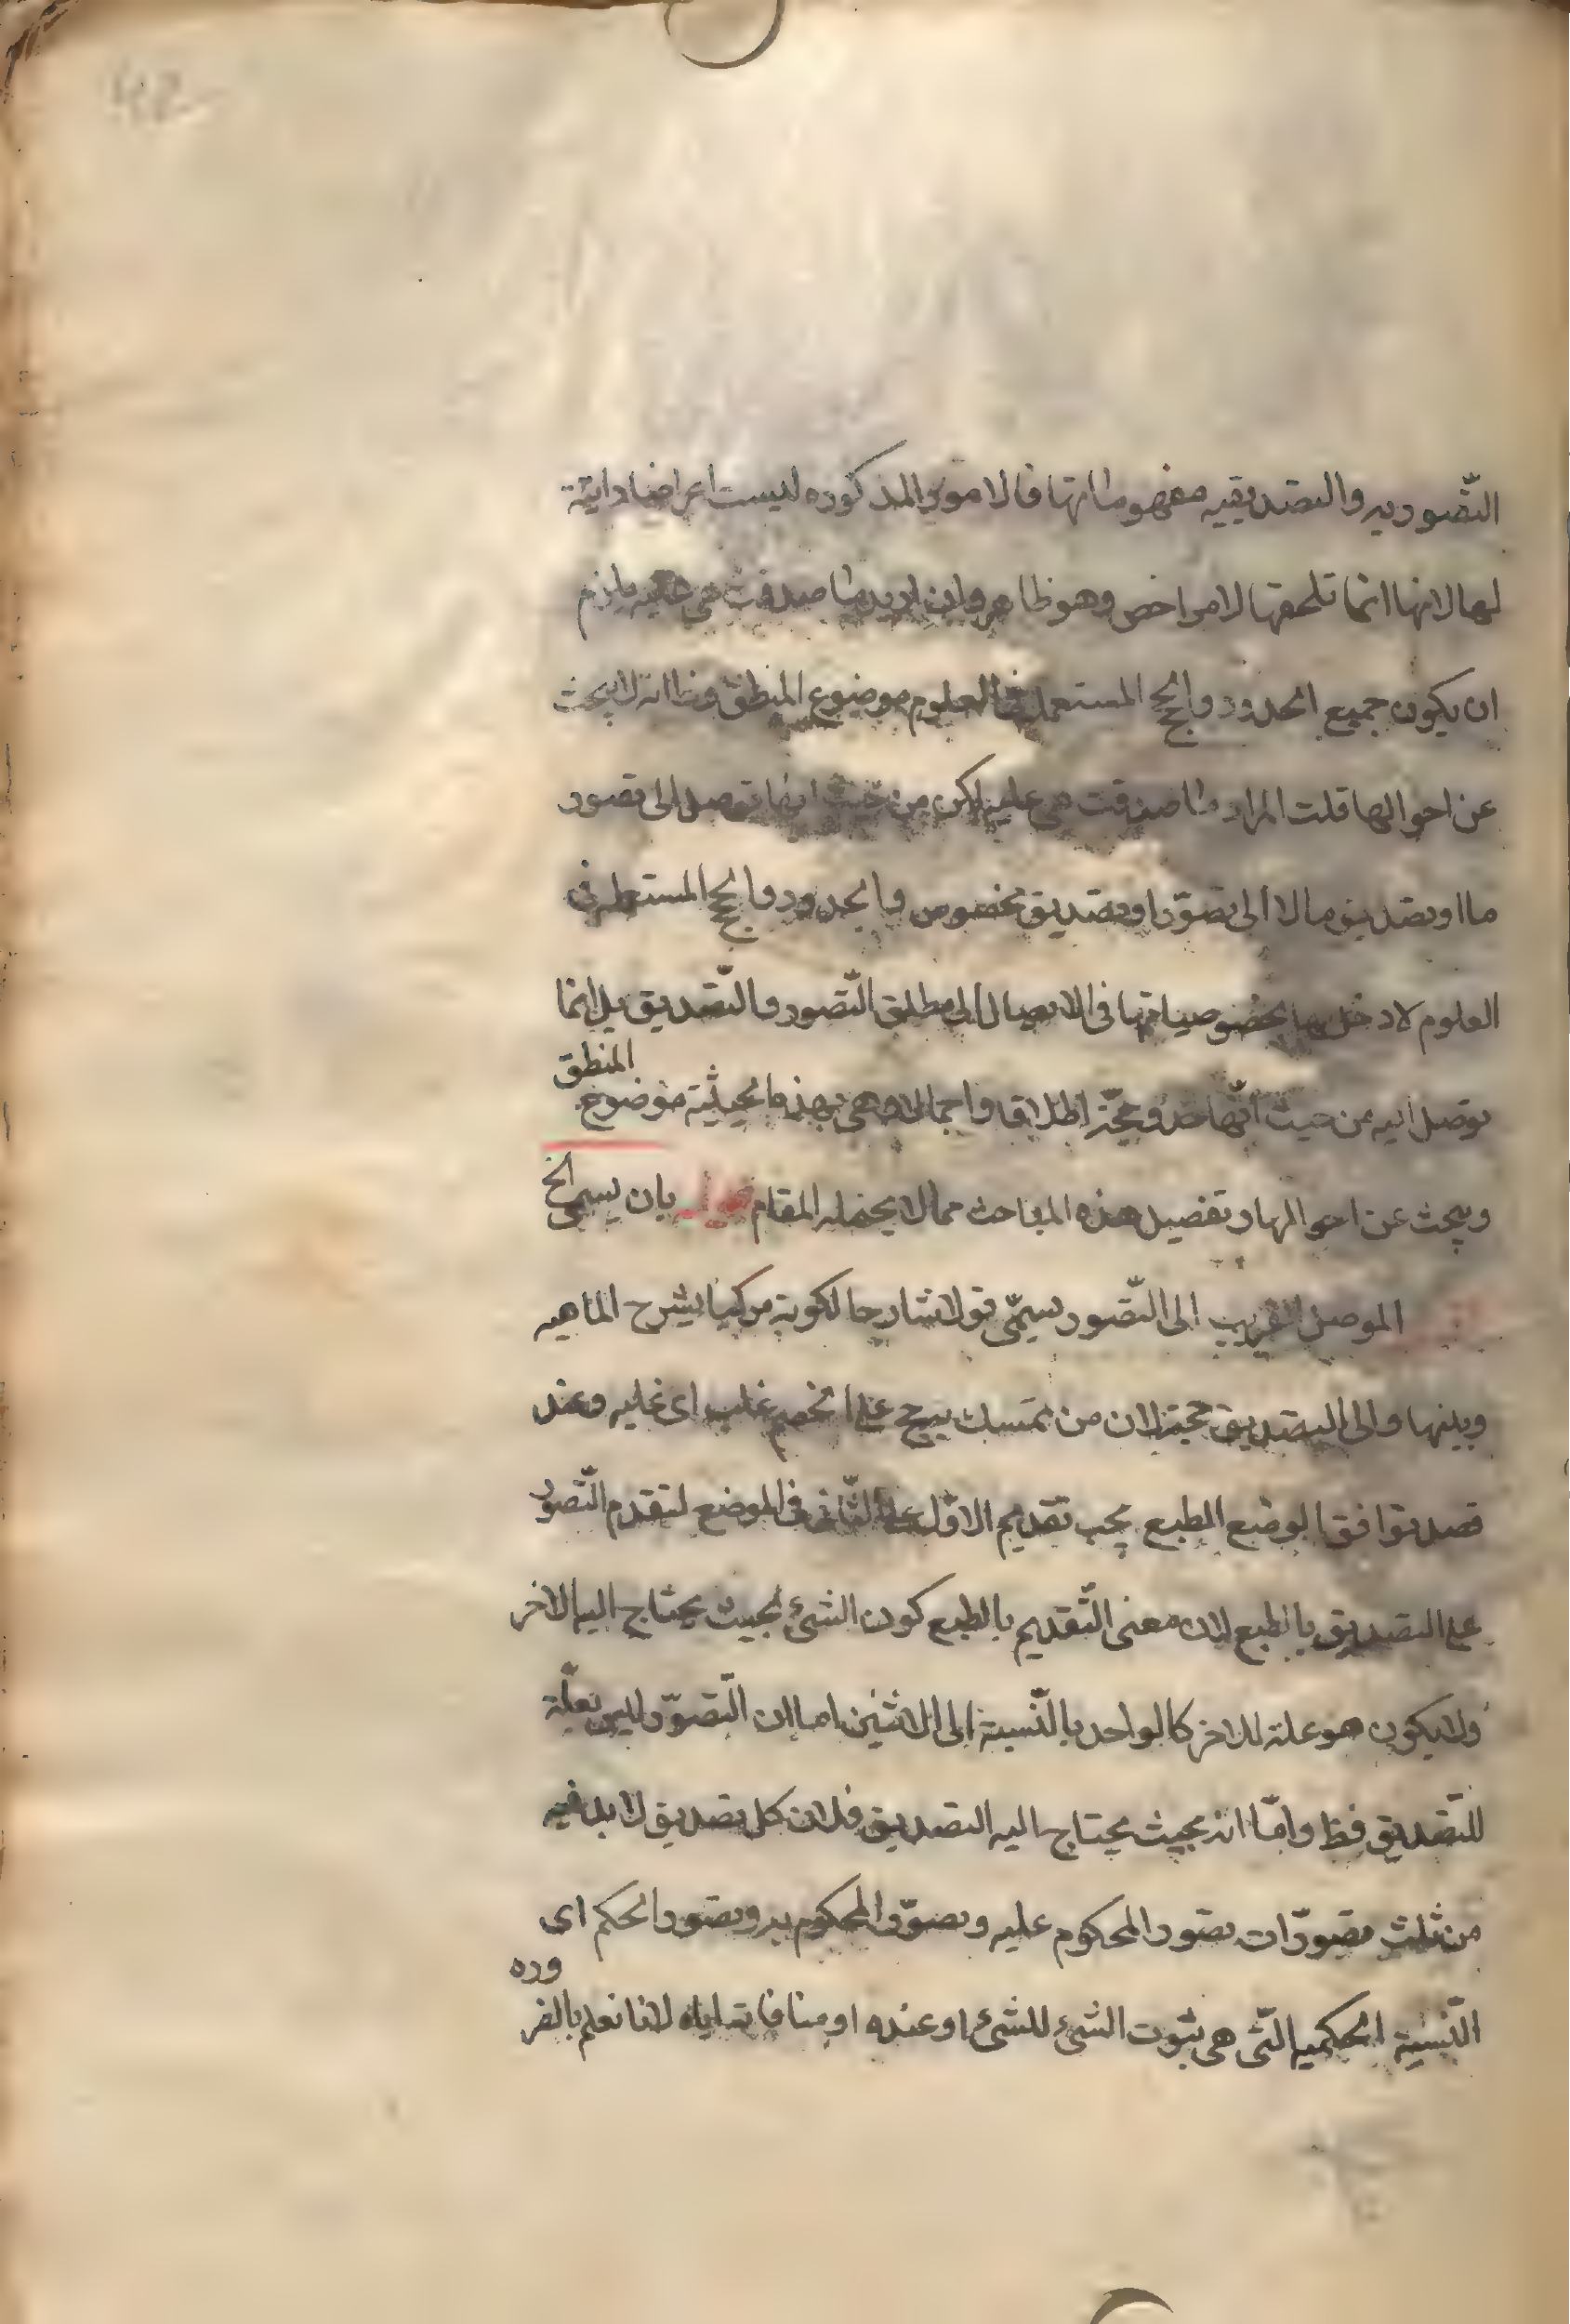 42
التّصوريه والتصديقيه مفهوماتها فالامور المذكوره ليست اعراضا ذاتية
لها لانها انما تلحقها لامر اخص وهو ظاهر وان اريد ما صدقت هي عليه يلزم
ان يكون جميع الحدود والحجج المستعمله في العلوم موضوع المنطق مع انه لا يبحث
عن احوالها قلت المراد ما صدقت هي عليه لكن من حيث انها توصل الى تصور
ما او تصديق ما لا الى تصوّر او تصديق مخصوص والحدود والحجج المستعمله في
العلوم لا دخل لها بخصوصياتها في الايصال الى مطلق التّصور والتّصديق بل انما
توصل اليه من حيث انّها حد وحجّة اطلاقا واجمالا وهي بهذه الحيثية موضوع المنطق
ويبحث عن احوالها وتفصيل هذه المباحث مما لا يحتمله المقام قوله بان يسمى الخ
الموصل القريب الى التّصور يسمّى قولا شارحا لكونه مركبا يشرح الماهيه
ويبينها والى التصديق حجة لان من تمسك بحجج على الخصم غلب اى عليه وعند
قصد توافق الوضع الطبع يجب تقديم الاوّل على الثّاني في الموضع لتقدم التّصور
على التصديق بالطبع لان معنى التّقديم بالطبع كون الشئ بحيث يحتاج اليه الاخر
ولا يكون هو علة للاخر كالواحد بالنّسبة الى الاثنين اما ان التّصوّر ليس بعلّة
للتّصديق فظ وامّا انه بحيث يحتاج اليه التصديق فلان كل تصديق لا بد فيه
من ثلث تصورّات تصور المحكوم عليه وتصوّر المحكوم به وتصور الحكم اى
النّسبة الحكميه التّى هى ثبوت الشئ للشئ او عنده او منافاته اياه لانا نعلم بالضروره